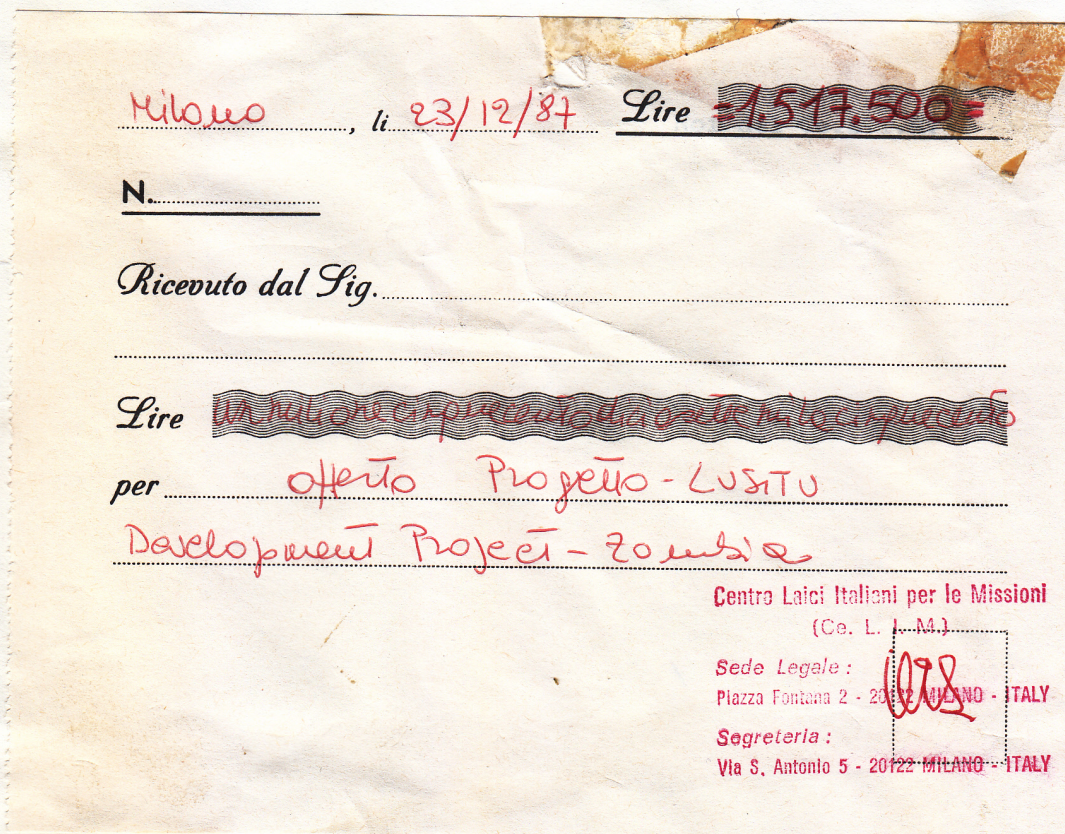 Milano, li 23/12/87 Lire =1.517.500=
N.
Ricevuto dal Sig.
Lire un milione cinquecentodiciasettemilacinquecento
per offerto Progetto - LUSITU
Development Project - Zambia
Centro Laici Italiani per le Missioni
(Ce. L. I. M.)
Sede Legale:
Piazza Fontana 2 - 20122 MILANO - ITALY
Segreteria:
Via S. Antonio 5 - 20122 MILANO - ITALY